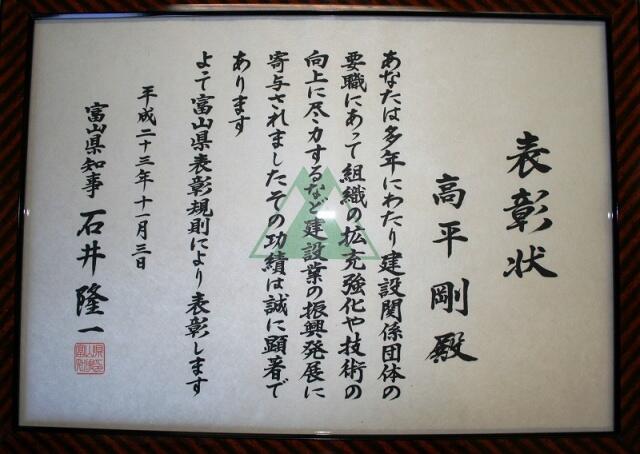 表彰状
高平剛殿
あなたは多年にわたり建設関係団体の
要職にあって組織の拡充強化や技術の
向上に尽力するなど建設業の振興発展に
寄与されましたその功績は誠に顕著で
あります
よって富山県表彰規則により表彰します
平成二十三年十一月三日
富山県知事 石井隆一